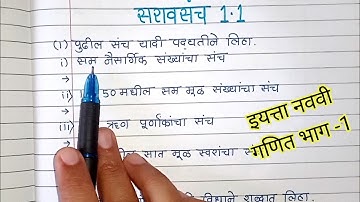 सरावसंच 1.1
(1) पुढील संच यादी पद्धतीने लिहा.
i) सम नैसर्गिक संख्यांचा संच
→
50 मधील सम मूळ संख्यांचा संच
→
ऋण पूर्णांकांचा संच
सात मूळ स्वरांचा
शब्दात लिहा.
इयत्ता नववी
गणित भाग -1